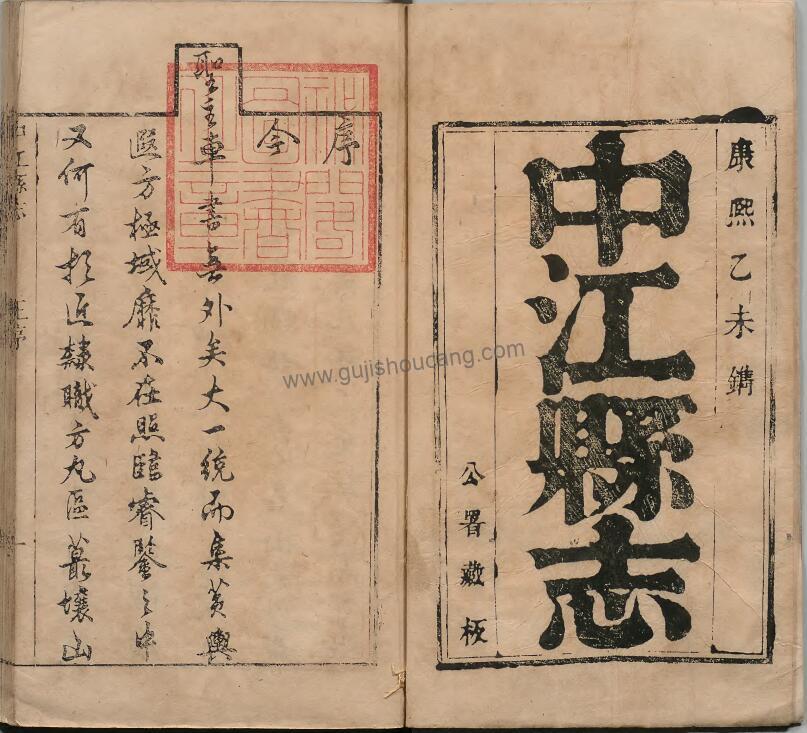 康熙乙未鐫
中江縣志
公署藏板
序
今
聖主車書無外矣大一統而集黃輿
遐方極域靡不在照臨睿鑒之中
又何有於近隸職方丸區蕞壤山
中江縣志
序
秘閣圖書之章
www.gujishoucang.com